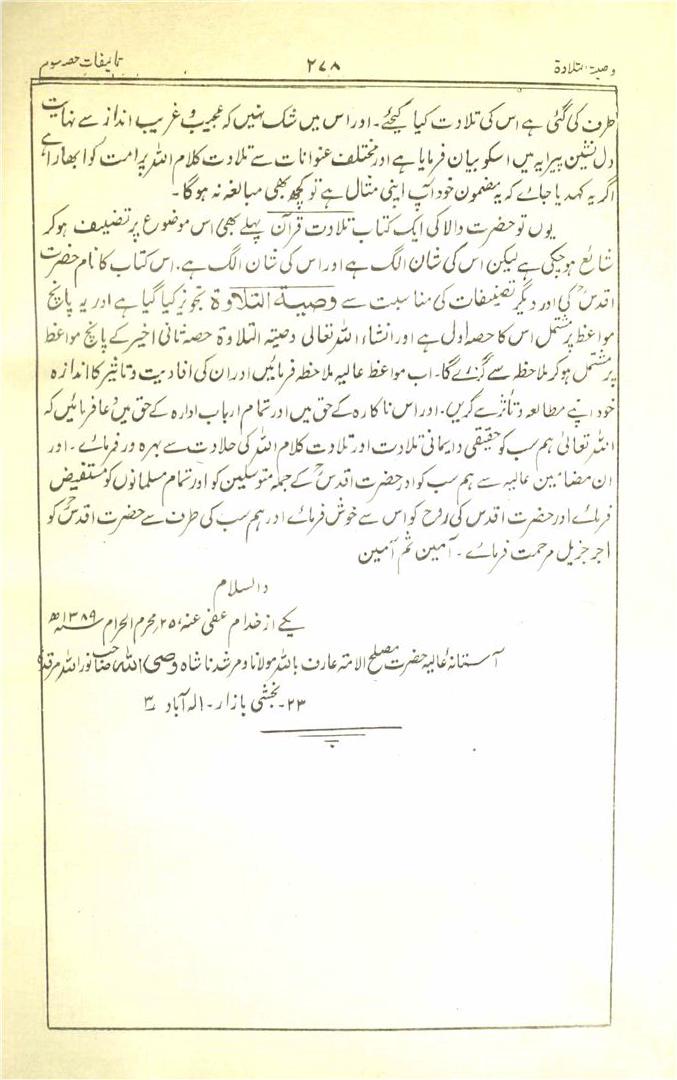 وصیۃ التلاوۃ ۲۷۸ تالیفات حصہ سوم
طرف کی گئی ہے اس کی تلاوت کیا کیجئے۔ اور اس میں شک نہیں کہ عجیب و غریب انداز سے نہایت
دل نشین پیرایہ میں اسکو بیان فرمایا ہے اور مختلف عنوانات سے تلاوت کلام اللہ پر امت کو ابھارا ہے
اگر یہ کہدیا جائے کہ یہ مضمون خود آپ اپنی مثال ہے تو کچھ بھی مبالغہ نہ ہوگا۔
یوں تو حضرت والا کی ایک کتاب تلاوت قرآن پہلے بھی اس موضوع پر تصنیف ہوکر
شائع ہوچکی ہے لیکن اس کی شان الگ ہے اور اس کی شان الگ ہے۔ اس کتاب کا نام حضرت
اقدسؒ کی اور دیگر تصنیفات کی مناسبت سے وصیۃ التلاوۃ تجویز کیا گیا ہے اور یہ پانچ
مواعظ پر مشتمل اس کا حصہ اول ہے اور انشاء اللہ تعالیٰ وصیتہ التلاوۃ حصہ ثانی اخیر کے پانچ مواعظ
پر مشتمل ہوکر ملاحظہ سے گزرے گا۔ اب مواعظ عالیہ ملاحظہ فرمائیں اور ان کی افادیت و تاثیر کا اندازہ
خود اپنے مطالعہ و تأثر سے کریں۔ اور اس ناکارہ کے حق میں اور تمام ارباب ادارہ کے حق میں دعا فرمائیں کہ
اللہ تعالیٰ ہم سب کو حقیقی و ایمانی تلاوت اور تلاوت کلام اللہ کی حلاوت سے بہرہ ور فرمائے۔ اور
ان مضامین عالیہ سے ہم سب کو اور حضرت اقدسؒ کے جملہ متوسلین کو اور تمام مسلمانوں کو مستفیض
فرمائے اور حضرت اقدس کی روح کو اس سے خوش فرمائے اور ہم سب کی طرف سے حضرت اقدسؒ کو
اجر جزیل مرحمت فرمائے۔ آمین ثم آمین
والسلام
یکے از خدام عفی عنہ، ۲۵ محرم الحرام سنہ ۱۳۸۹ھ
آستانہ عالیہ حضرت مصلح الامۃ عارف باللہ مولانا و مرشدنا شاہ وصی اللہ صاحب نور اللہ مرقدہ
۲۳۔ بخشی بازار۔ الہ آباد ۳